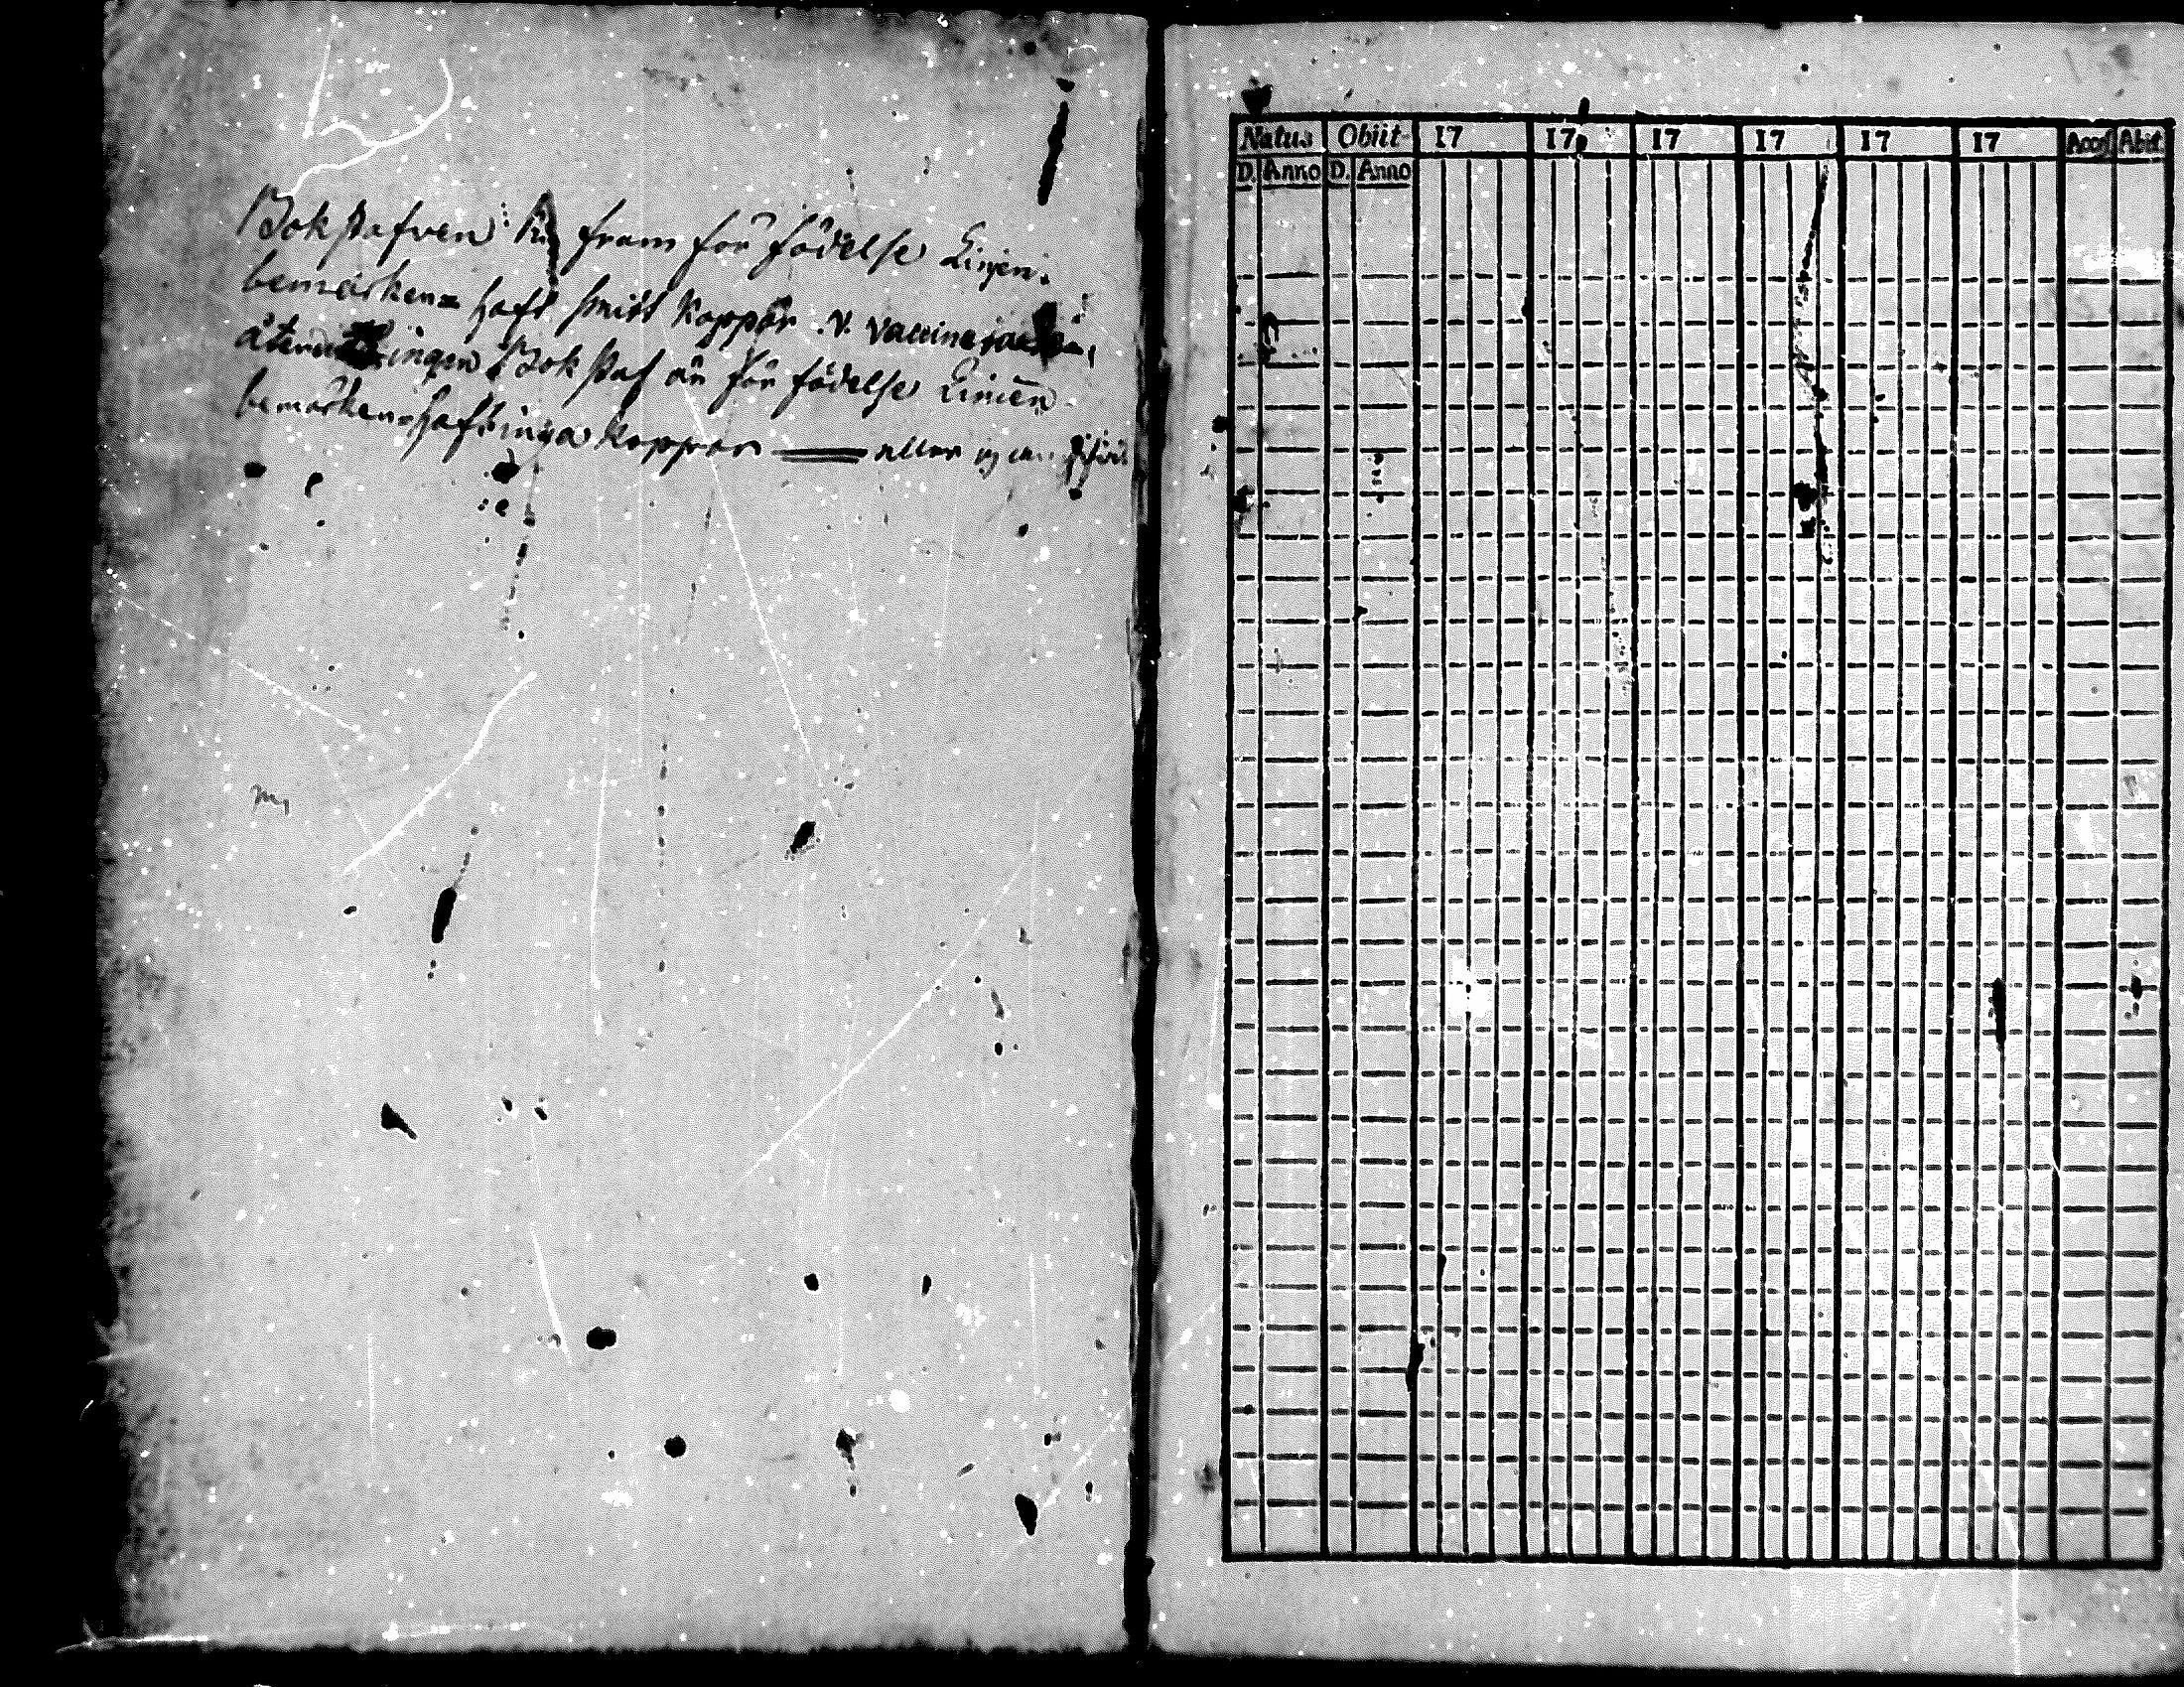 Bokstafven K fram för födelse Linjen.
bemärken= haft smitt koppor . v. vaccine
åter ingen Bokstaf än för födelse Linien
bemärken=haft inga koppor —— eller
Natus Obiit 17 17 17 17 17 17 Access Abit.
D. Anno D. Anno